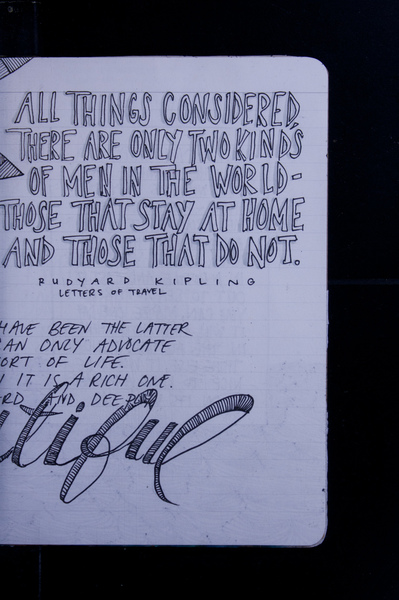 ALL THINGS CONSIDERED,
THERE ARE ONLY TWO KINDS
OF MEN IN THE WORLD-
THOSE THAT STAY AT HOME
AND THOSE THAT DO NOT.
RUDYARD KIPLING
LETTERS OF TRAVEL
HAVE BEEN THE LATTER
AN ONLY ADVOCATE
ORT OF LIFE.
IT IS A RICH ONE.
RD AND DEEPLY
utiful